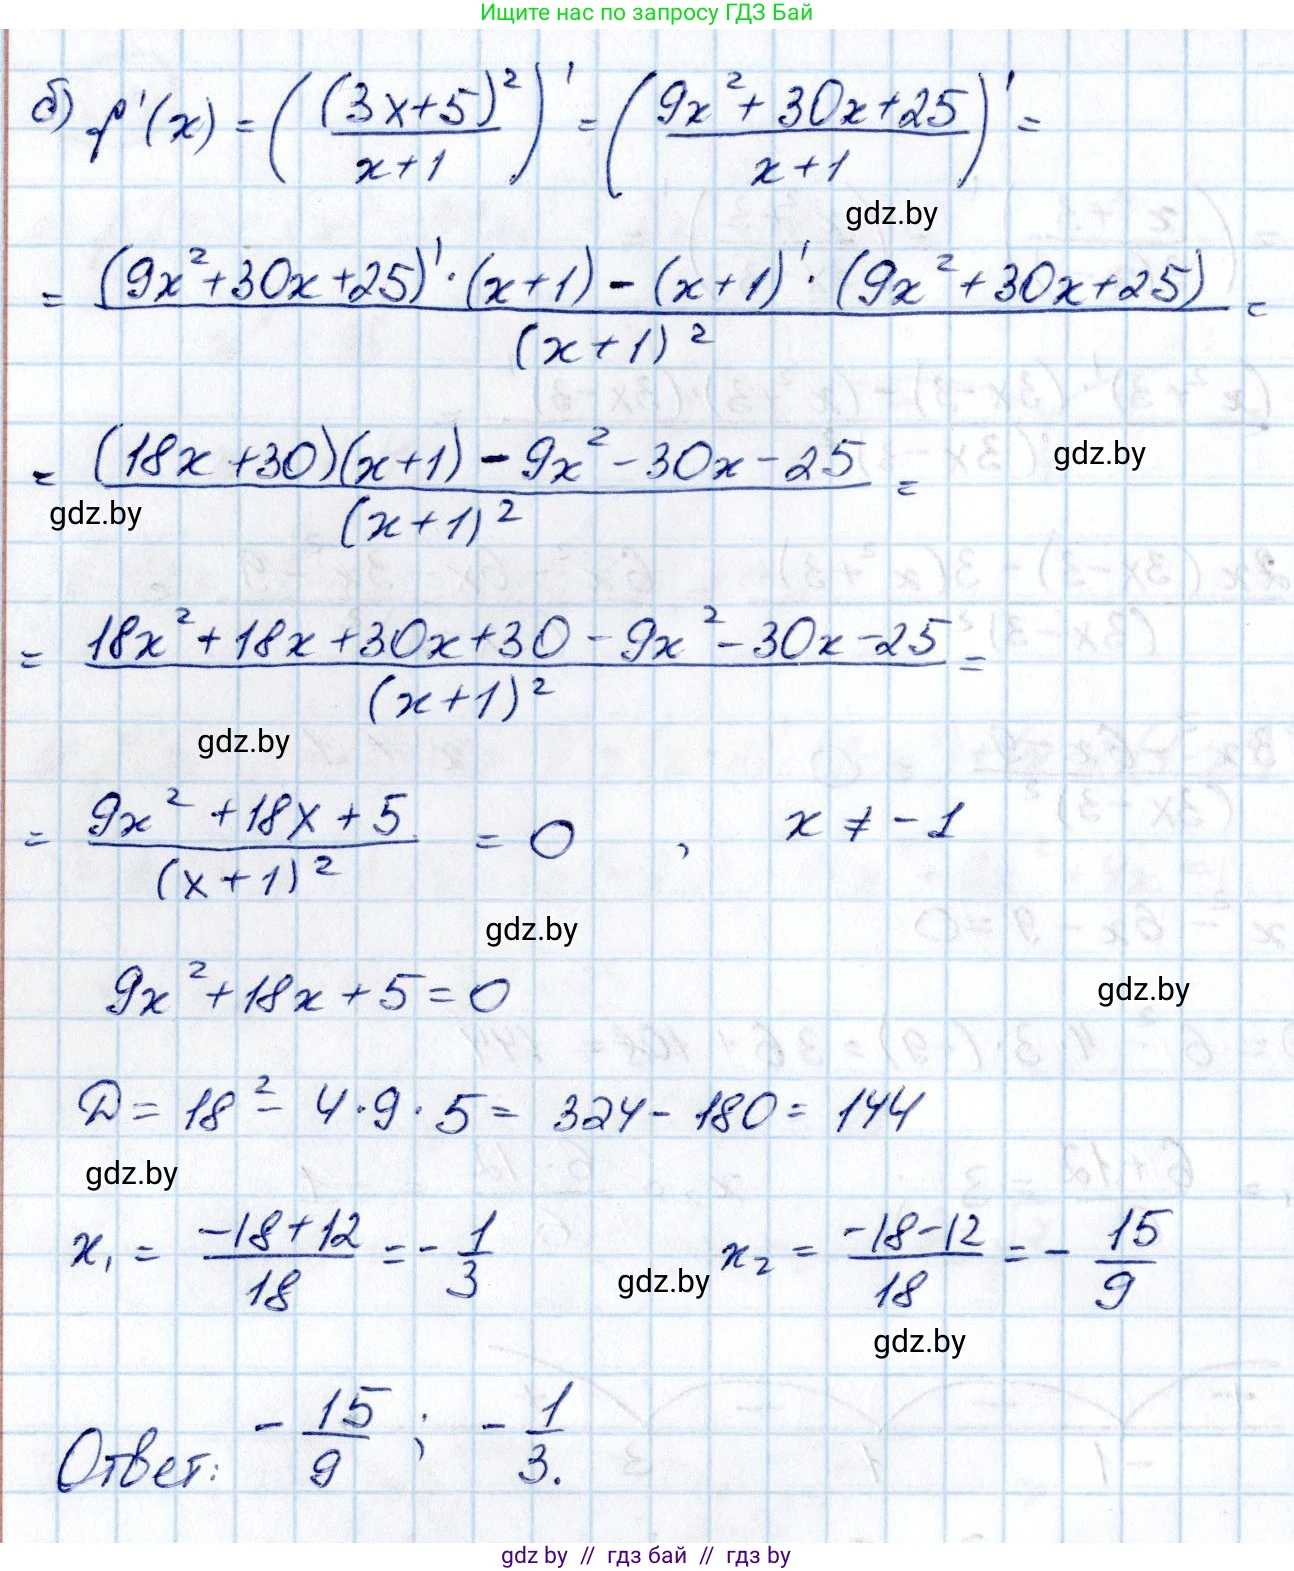 Ищите нас по запросу ГДЗ Бай
б) f'(x) = ((3x+5)²/(x+1))' = ((9x²+30x+25)/(x+1))' =
gdz.by
= ((9x²+30x+25)'·(x+1) - (x+1)'·(9x²+30x+25))/(x+1)² =
= ((18x+30)(x+1) - 9x² - 30x - 25)/(x+1)² =
gdz.by
gdz.by
= (18x²+18x+30x+30-9x²-30x-25)/(x+1)² =
gdz.by
= (9x²+18x+5)/(x+1)² = 0 , x ≠ -1
gdz.by
9x²+18x+5=0
gdz.by
D = 18² - 4·9·5 = 324 - 180 = 144
gdz.by
x₁ = (-18+12)/18 = -1/3 x₂ = (-18-12)/18 = -15/9
gdz.by
gdz.by
Ответ: -15/9 ; -1/3.
gdz.by // гдз бай // гдз by